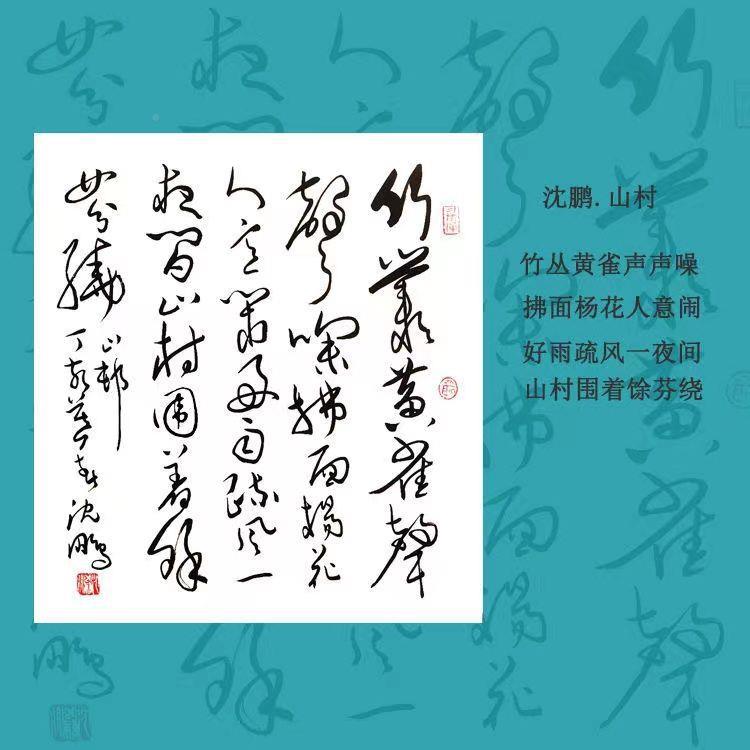 竹叢黄雀聲
聲噪拂面楊花
人意鬧好雨疏風一
夜間山村圍着餘
芬繞
山邨
丁亥暮春沈鵬
沈鹏.山村
竹丛黄雀声声噪
拂面杨花人意闹
好雨疏风一夜间
山村围着馀芬绕